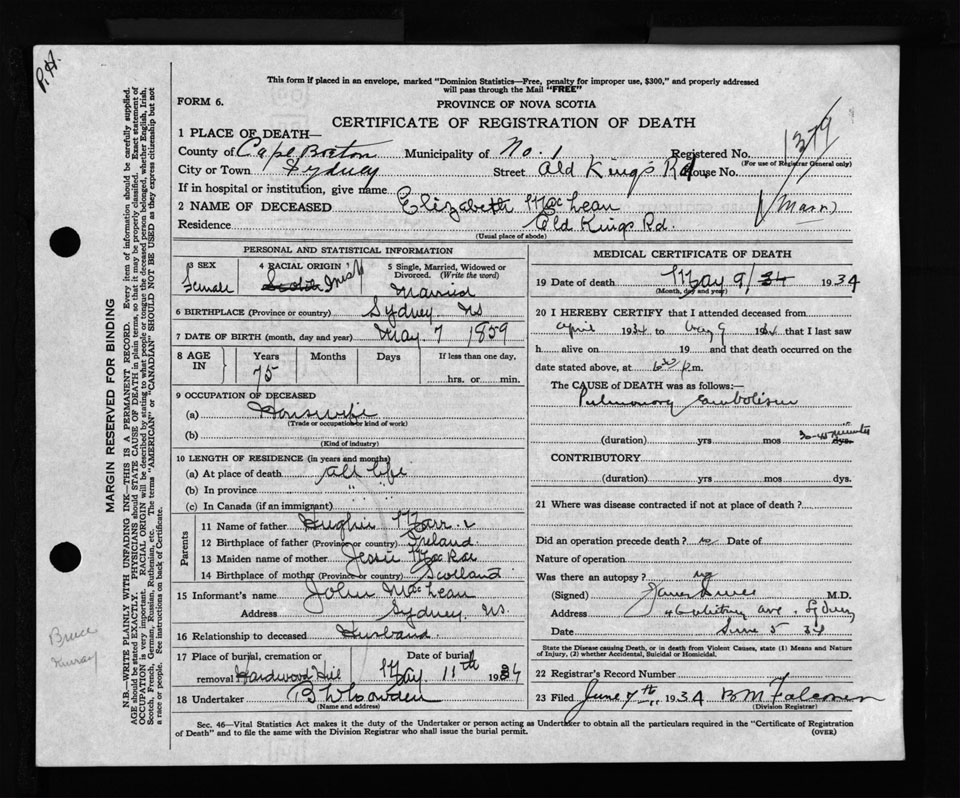 P.H.
This form if placed in an envelope, marked "Dominion Statistics—Free, penalty for improper use, $300," and properly addressed
will pass through the Mail "FREE"
FORM 6.
PROVINCE OF NOVA SCOTIA
CERTIFICATE OF REGISTRATION OF DEATH
1379
1 PLACE OF DEATH—
County of Cape Breton Municipality of No. 1 Registered No.
(For use of Registrar General only)
City or Town Sydney Street Old King's Rd. House No.
If in hospital or institution, give name
2 NAME OF DECEASED Elizabeth MacLean (Marr)
Residence Old Kings Rd.
(Usual place of abode)
PERSONAL AND STATISTICAL INFORMATION
3 SEX 4 RACIAL ORIGIN 5 Single, Married, Widowed or Divorced. (Write the word)
Female Scotch Irish Married
6 BIRTHPLACE (Province or country) Sydney NS
7 DATE OF BIRTH (month, day and year) May. 7 1859
8 AGE IN Years Months Days If less than one day,
75 hrs. or min.
9 OCCUPATION OF DECEASED
(a) Housewife
(Trade or occupation or kind of work)
(b)
(Kind of industry)
10 LENGTH OF RESIDENCE (in years and months)
(a) At place of death all life
(b) In province " "
(c) In Canada (if an immigrant) " "
Parents
11 Name of father Hughie Marr
12 Birthplace of father (Province or country) Ireland.
13 Maiden name of mother Jessie MacRae
14 Birthplace of mother (Province or country) Scotland
15 Informant's name John MacLean
Address Sydney NS.
16 Relationship to deceased Husband.
17 Place of burial, cremation or removal Hardwood Hill Date of burial May. 11th 1934
18 Undertaker
(Name and address)
MEDICAL CERTIFICATE OF DEATH
19 Date of death May 9/34 1934
(Month, day and year)
20 I HEREBY CERTIFY that I attended deceased from
April 1934 to May 9 1934 that I last saw
h alive on 19 and that death occurred on the
date stated above, at 6 30 p.m.
The CAUSE of DEATH was as follows:—
Pulmonary embolism
(duration) yrs mos 30-45 minutes dys.
CONTRIBUTORY
(duration) yrs mos dys.
21 Where was disease contracted if not at place of death?
Did an operation precede death? no Date of
Nature of operation
Was there an autopsy? no
(Signed) James Bruce M.D.
Address 46 Whitney ave. Sydney
Date June 5 34
State the Disease causing Death, or in death from Violent Causes, state (1) Means and Nature of Injury, (2) whether Accidental, Suicidal or Homicidal.
22 Registrar's Record Number
23 Filed June 7th 1934 B M Falconer
(Division Registrar)
Sec. 46—Vital Statistics Act makes it the duty of the Undertaker or person acting as Undertaker to obtain all the particulars required in the "Certificate of Registration
of Death" and to file the same with the Division Registrar who shall issue the burial permit. (OVER)
MARGIN RESERVED FOR BINDING
N.B.—WRITE PLAINLY WITH UNFADING INK—THIS IS A PERMANENT RECORD. Every item of information should be carefully supplied.
AGE should be stated EXACTLY. PHYSICIANS should STATE CAUSE OF DEATH in plain terms, so that it may be properly classified. Exact statement of
OCCUPATION is very important. RACIAL ORIGIN will be described by stating to what people or tongue the deceased person belonged, whether English, Irish,
Scotch, French, German, Russian, Ruthenian, etc. The terms "AMERICAN" or "CANADIAN" SHOULD NOT BE USED as they express citizenship but not
a race or people. See instructions on back of Certificate.
Bruce
Murray